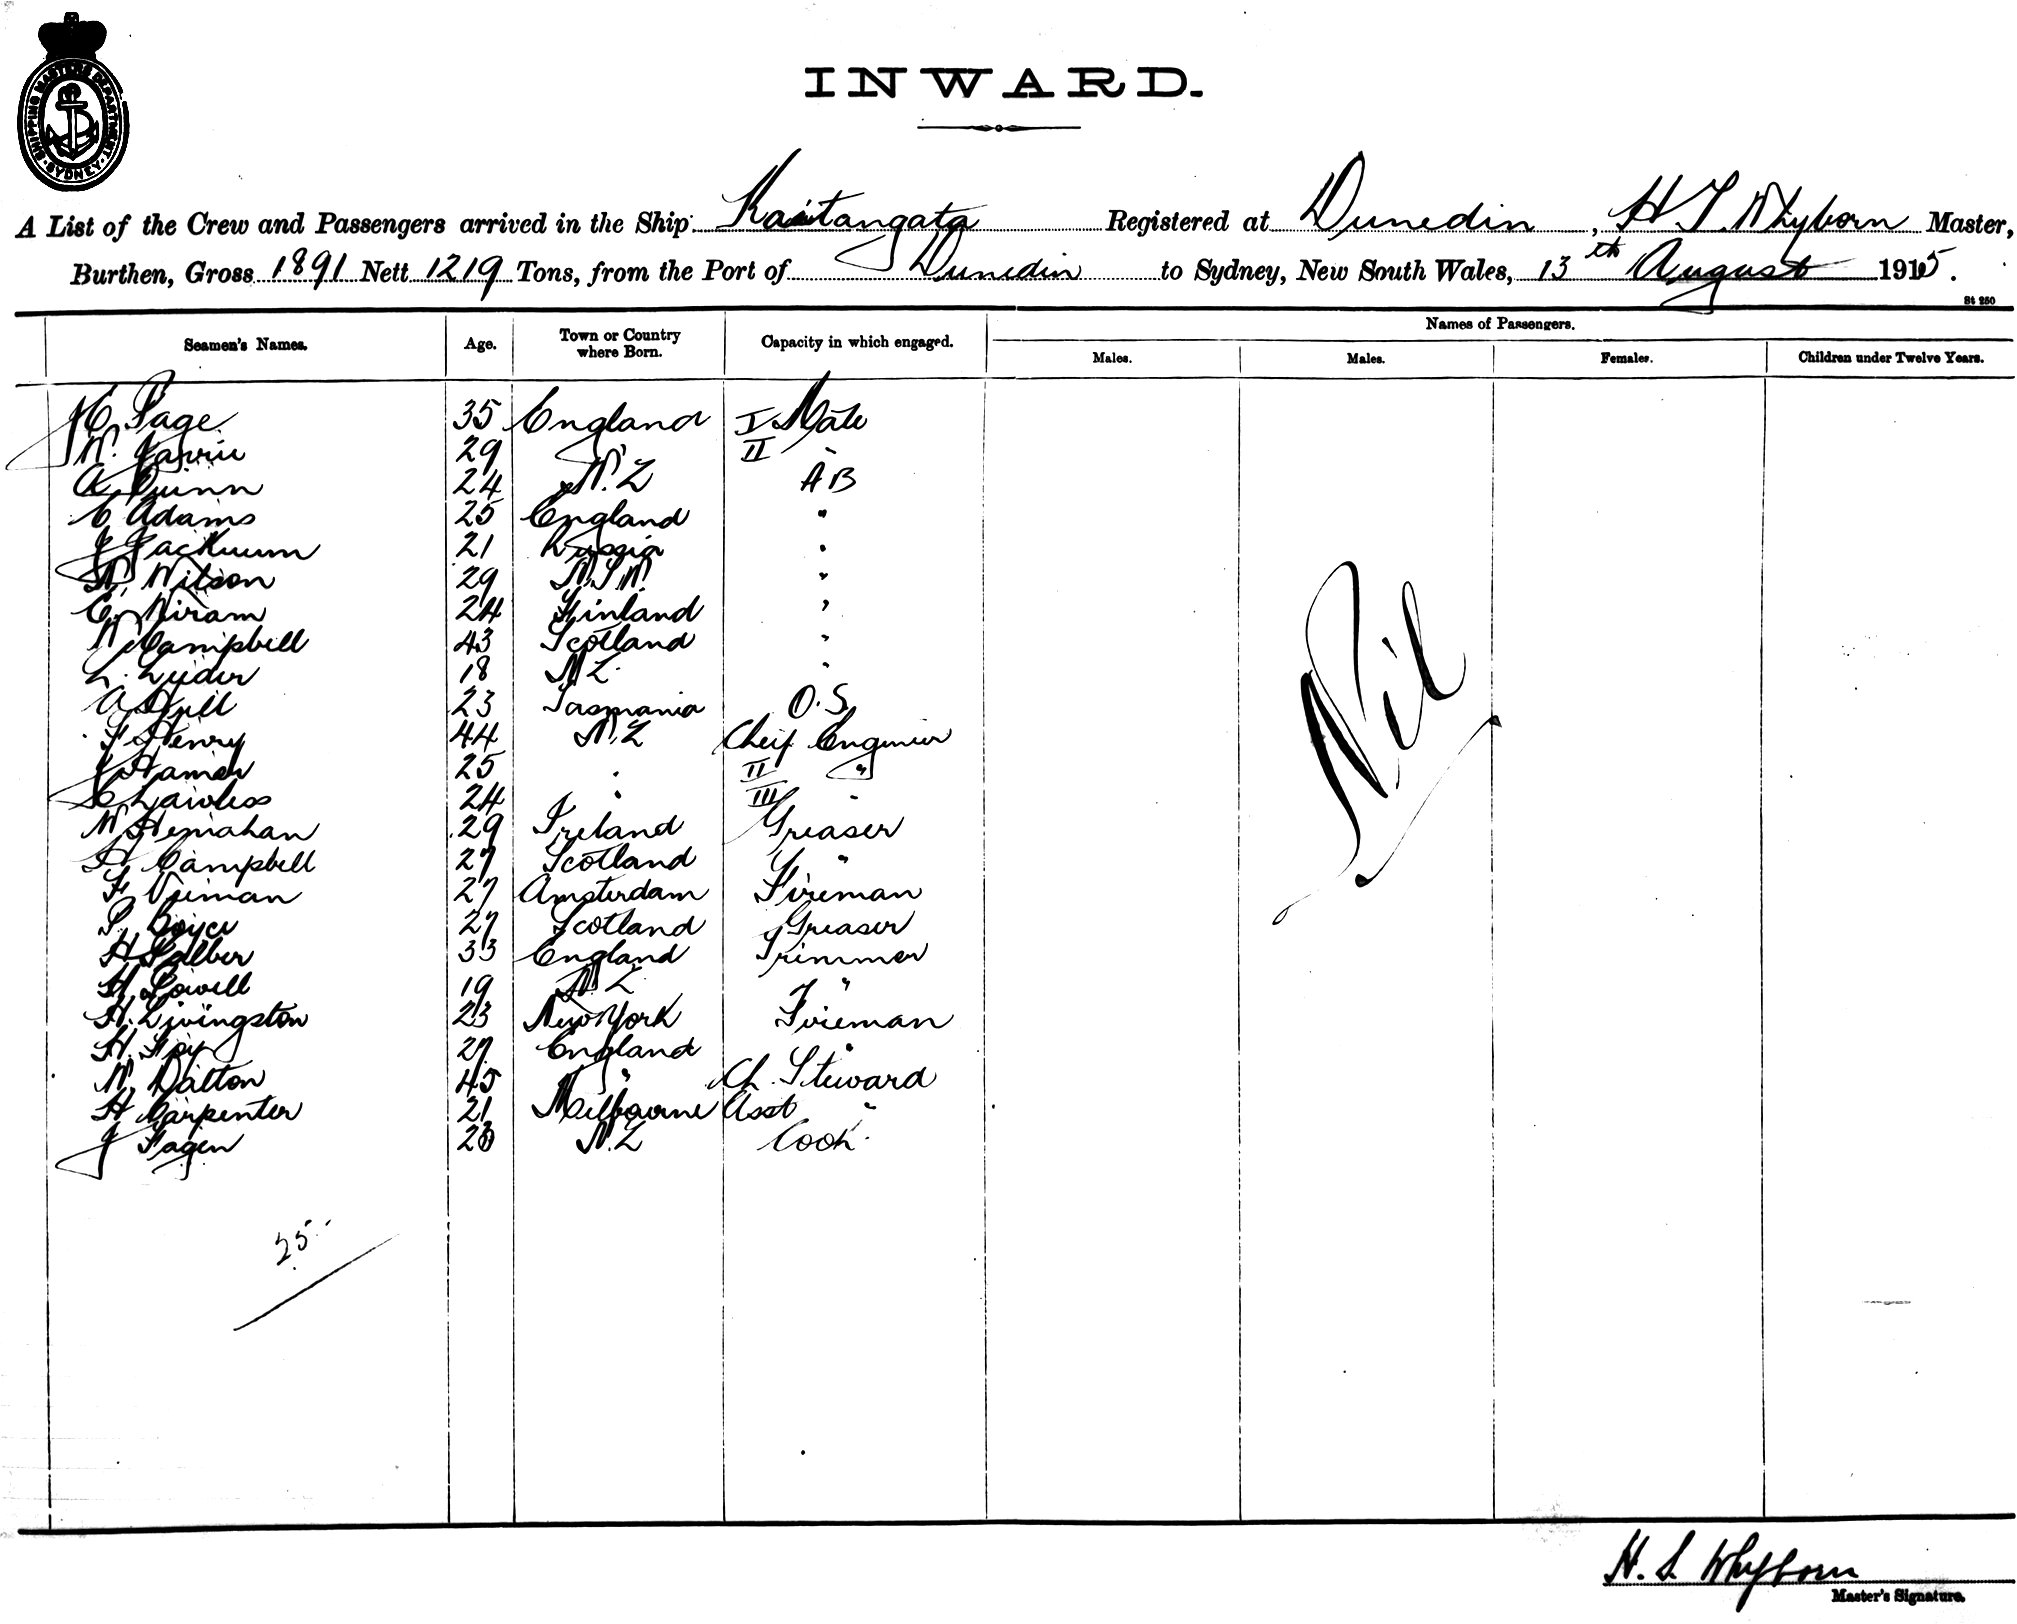 SHIPPING MASTERS DEPARTMENT SYDNEY
INWARD.
A List of the Crew and Passengers arrived in the Ship Kaitangata Registered at Dunedin, H S Whyborn Master,
Burthen, Gross 1891 Nett 1219 Tons, from the Port of Dunedin to Sydney, New South Wales, 13th August 1915.
St 250
Seamen's Names. Age. Town or Country where Born. Capacity in which engaged. Names of Passengers.
Males. Males. Females. Children under Twelve Years.
C Page 35 England I Mate
W. 29 II "
A Quinn 24 N.Z AB
C Adams 25 England "
J 21 Russia "
W. Wilson 29 N.S.W. "
C. 24 Finland "
N Campbell 43 Scotland "
L. 18 N Z "
A Hill 23 Tasmania O.S
F Henry 44 N.Z Cheif Engineer
J Hamer 25 " II "
C Lawless 24 " III "
W 29 Ireland Greaser
A Campbell 27 Scotland "
F 27 Amsterdam Fireman
P. Boyce 27 Scotland Greaser
H 33 England Trimmer
H. 19 N.Z "
H. Livingston 23 New York Fireman
H. 27 England "
W. Dalton 45 " Ch. Steward
H Carpenter 21 Melbourne Asst "
J Fagen N.Z Cook
Nil
25
H. S. Whyborn
Master's Signature.